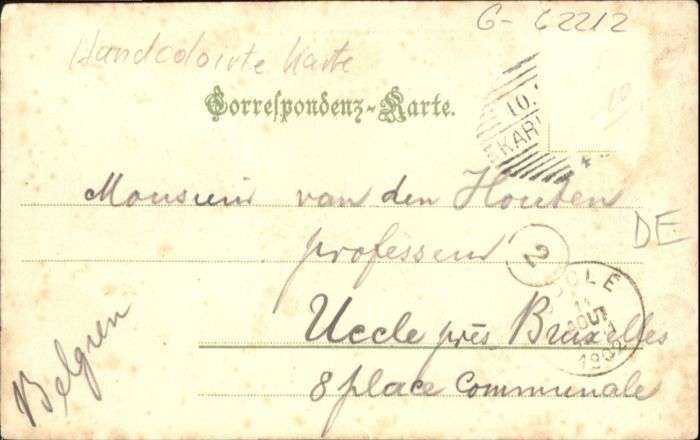 G- 62212
Handcolorirte Karte
Correspondenz-Karte.
10.
KARL
10
Monsieur van den Houten
professeur
DE
2
CLE
AOUT
1902
Uccle près Bruxelles
8 place Communale
Belgien